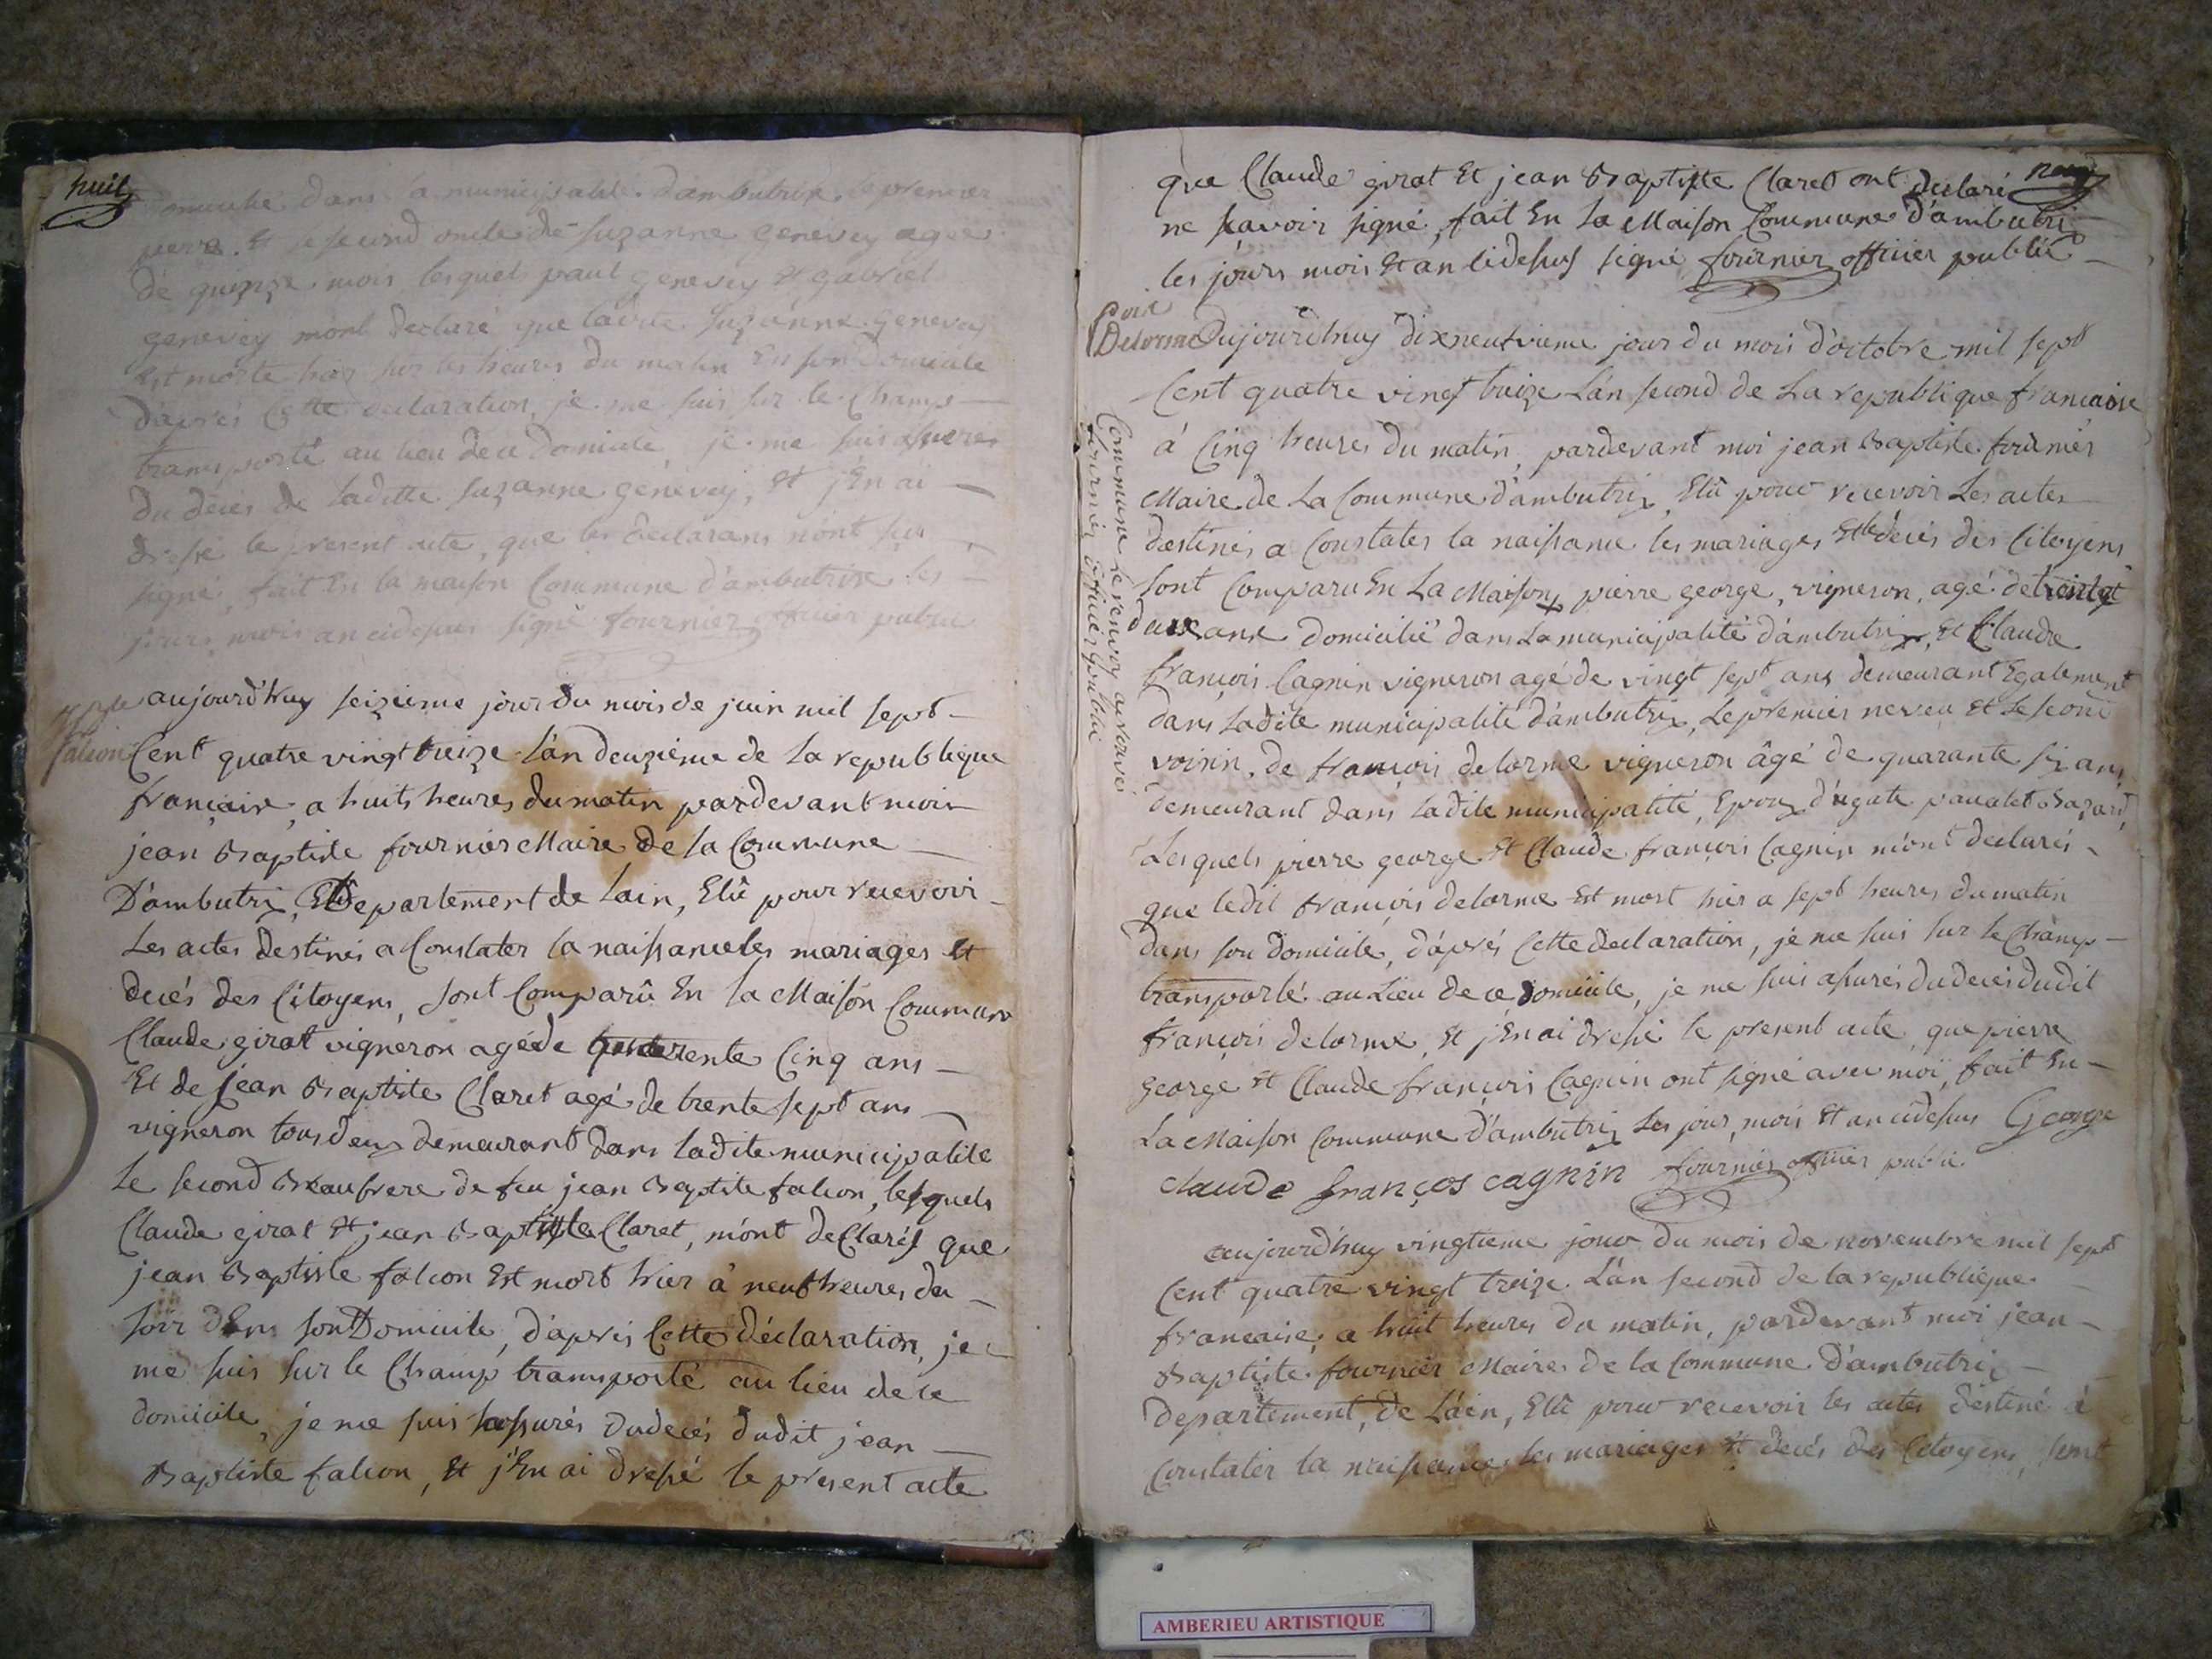 huit
dans la municipalité d'ambutrix, le premier
pere. Et le second oncle de Suzanne Genevey agée
de quinze mois lesquels paul genevey Et gabriel
genevey mont declaré que ladite Suzanne genevey
Est morte hier sur les heures du matin En son Domicile
d'aprés Cette declaration, je me suis sur le Champs
transporté au lieu de ce Domicile, je me suis assurer
Du decés de laditte Suzanne genevey, Et j'En ai
dressé le present acte, que les declarans n'ont sçu
signé, fait En la maison Commune d'ambutrix les
jours mois an cidessus signé fournier officier public
falcon
aujourd'huy seizieme jour du mois de juin mil sept
Cent quatre vingt treize l'an deuzieme de la republique
françaire, a huits heures du matin pardevant moi
jean Baptiste fournier Maire de la Commune
D'ambutrix, Departement de Lain, Elû pour recevoir
Les actes destinés a Constater la naissance les mariages Et
decés des Citoyens, sont Comparû En la Maison Commune
Claude girat vigneron agé de trente Cinq ans
Et de Jean Baptiste Claret agé de trente sept ans
vigneron tous deux demeurant dans ladite municipalité
Le second Beaufrere de feu jean Baptiste falcon, lesquels
Claude girat Et jean Baptiste Claret, m'ont deClarés que
jean Baptiste falcon Est mort hier à neuf heures du
soir dans son Domicile, d'aprés Cette déclaration, je
me suis sur le Champ transporté au lieu de ce
domicile, je me suis assurés du decés dudit jean
Baptiste falcon, Et j'En ai dressé le present acte
neuf
que Claude girat Et jean Baptiste Claret ont declaré
ne sçavoir signé, fait En la Maison Commune d'ambutrix
les jours mois Et an cidessus signé fournier officier public
pour
Delorme
Aujourd'huy dixneuvieme jour du mois d'octobre mil sept
Cent quatre vingt treize L'an second de La republique francaise
à Cinq heures du matin, pardevant moi jean Baptiste fournier
Maire de La Commune d'ambutrix, Elû pour recevoir Les actes
destinés a Constater la naissance les mariages Et le decés des Citoyens
sont Comparu En La Maison x pierre george, vigneron, agé de
deux ans domicilié dans La municipalité d'ambutrix, Et Claude
françois Cagnin vigneron agé de vingt sept ans demeurant Egalement
dans Ladite municipalité d'ambutrix, Le premier neveu Et le second
voisin, de françois delorme vigneron âgé de quarante six ans
demeurant dans ladite municipalité, Epoux d'agate
Lesquels pierre george Et Claude françois Cagnin m'ont declarés
que ledit françois delorme Est mort hier a sept heures du matin
dans son domicile, d'aprés Cette declaration, je me suis sur le Champ
transporté au Lieu de ce domicile, je me suis assurés du decés dudit
françois delorme, Et j'En ai dressé le present acte, que pierre
George Et Claude françois Cagnin ont signé avec moi, fait En
La Maison Commune d'ambutrix Les jour, mois Et an cidessus George
claude franços cagnin fournier officier public
x Commune le renvoy aprouvé
fournier officier public
aujourd'huy vingtieme jour du mois de novembre mil sept
Cent quatre vingt treize L'an second de la republique
francaise, a huit heures du matin, pardevant moi jean
Baptiste fournier Maire de la Commune d'ambutrix
departement, de L'ain, Elû pour recevoir les actes destiné à
Constater la naissance les mariages Et decés des Citoyens, sont
AMBERIEU ARTISTIQUE